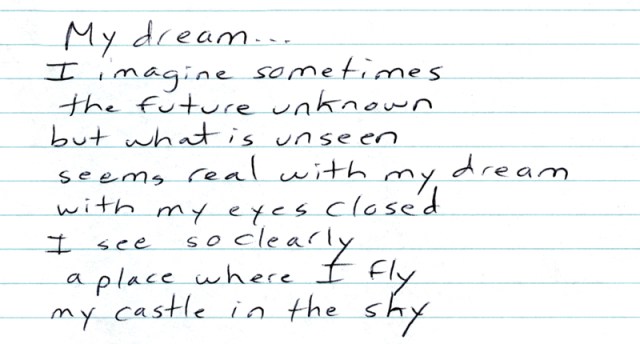 My dream...
I imagine sometimes
the future unknown
but what is unseen
seems real with my dream
with my eyes closed
I see so clearly
a place where I fly
my castle in the sky